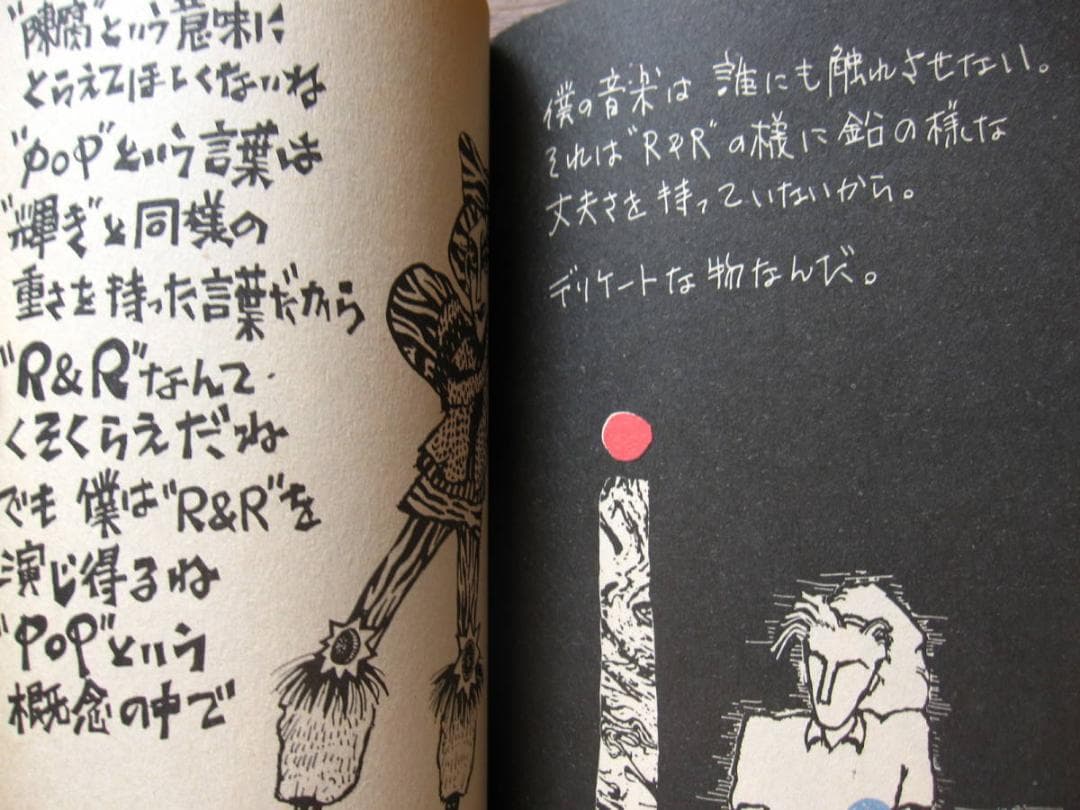 "陳腐"という意味に
とらえてほしくないね
"POP"という言葉は
"輝き"と同様の
重さを持った言葉だから
"R&R"なんて
くそくらえだね
でも僕は"R&R"を
演じ得るね
"POP"という
概念の中で
僕の音楽は誰にも触れさせない。
それは"R&R"の様に鉛の様な
丈夫さを持っていないから。
デリケートな物なんだ。